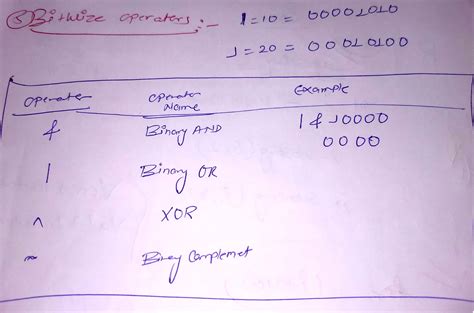 ⑤ Bitwize operators :-
I=10 = 00001010
J=20 = 00010100
operator operator Name Example
& Binary AND I & J 0000 0000
| Binary OR
^ XOR
~ Binay Complemet